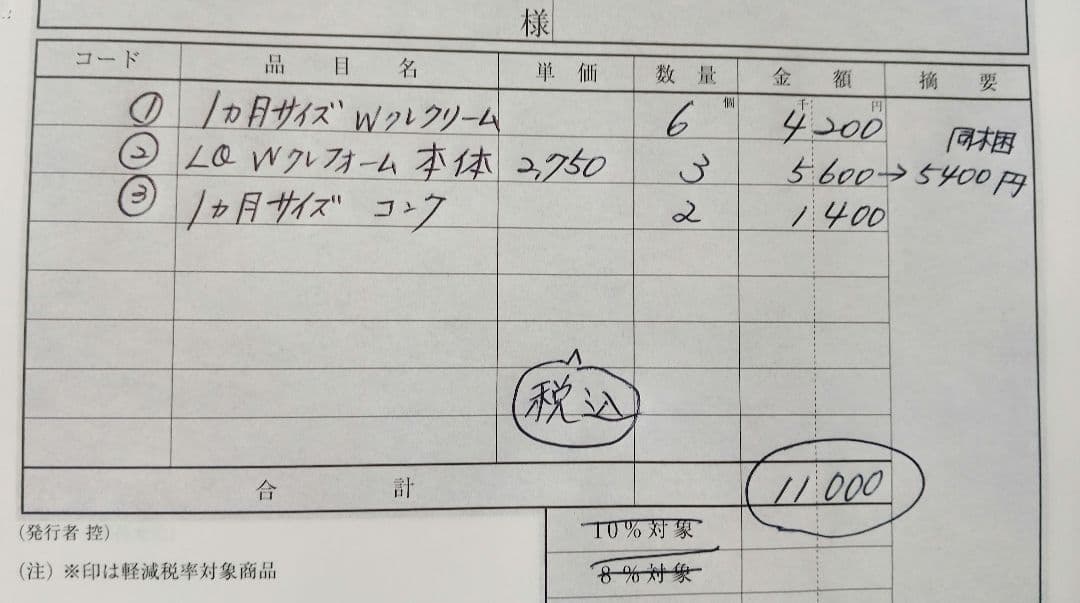 様
コード 品目名 単価 数量 金額 摘要
個 千 円
① 1ヵ月サイズ Wクレクリーム 6 4200 同梱
② LQ Wクレフォーム 本体 2,750 3 5600→5400円
③ 1ヵ月サイズ コンク 2 1400
税込
合計 11000
(発行者 控)
10%対象
(注) ※印は軽減税率対象商品
8%対象